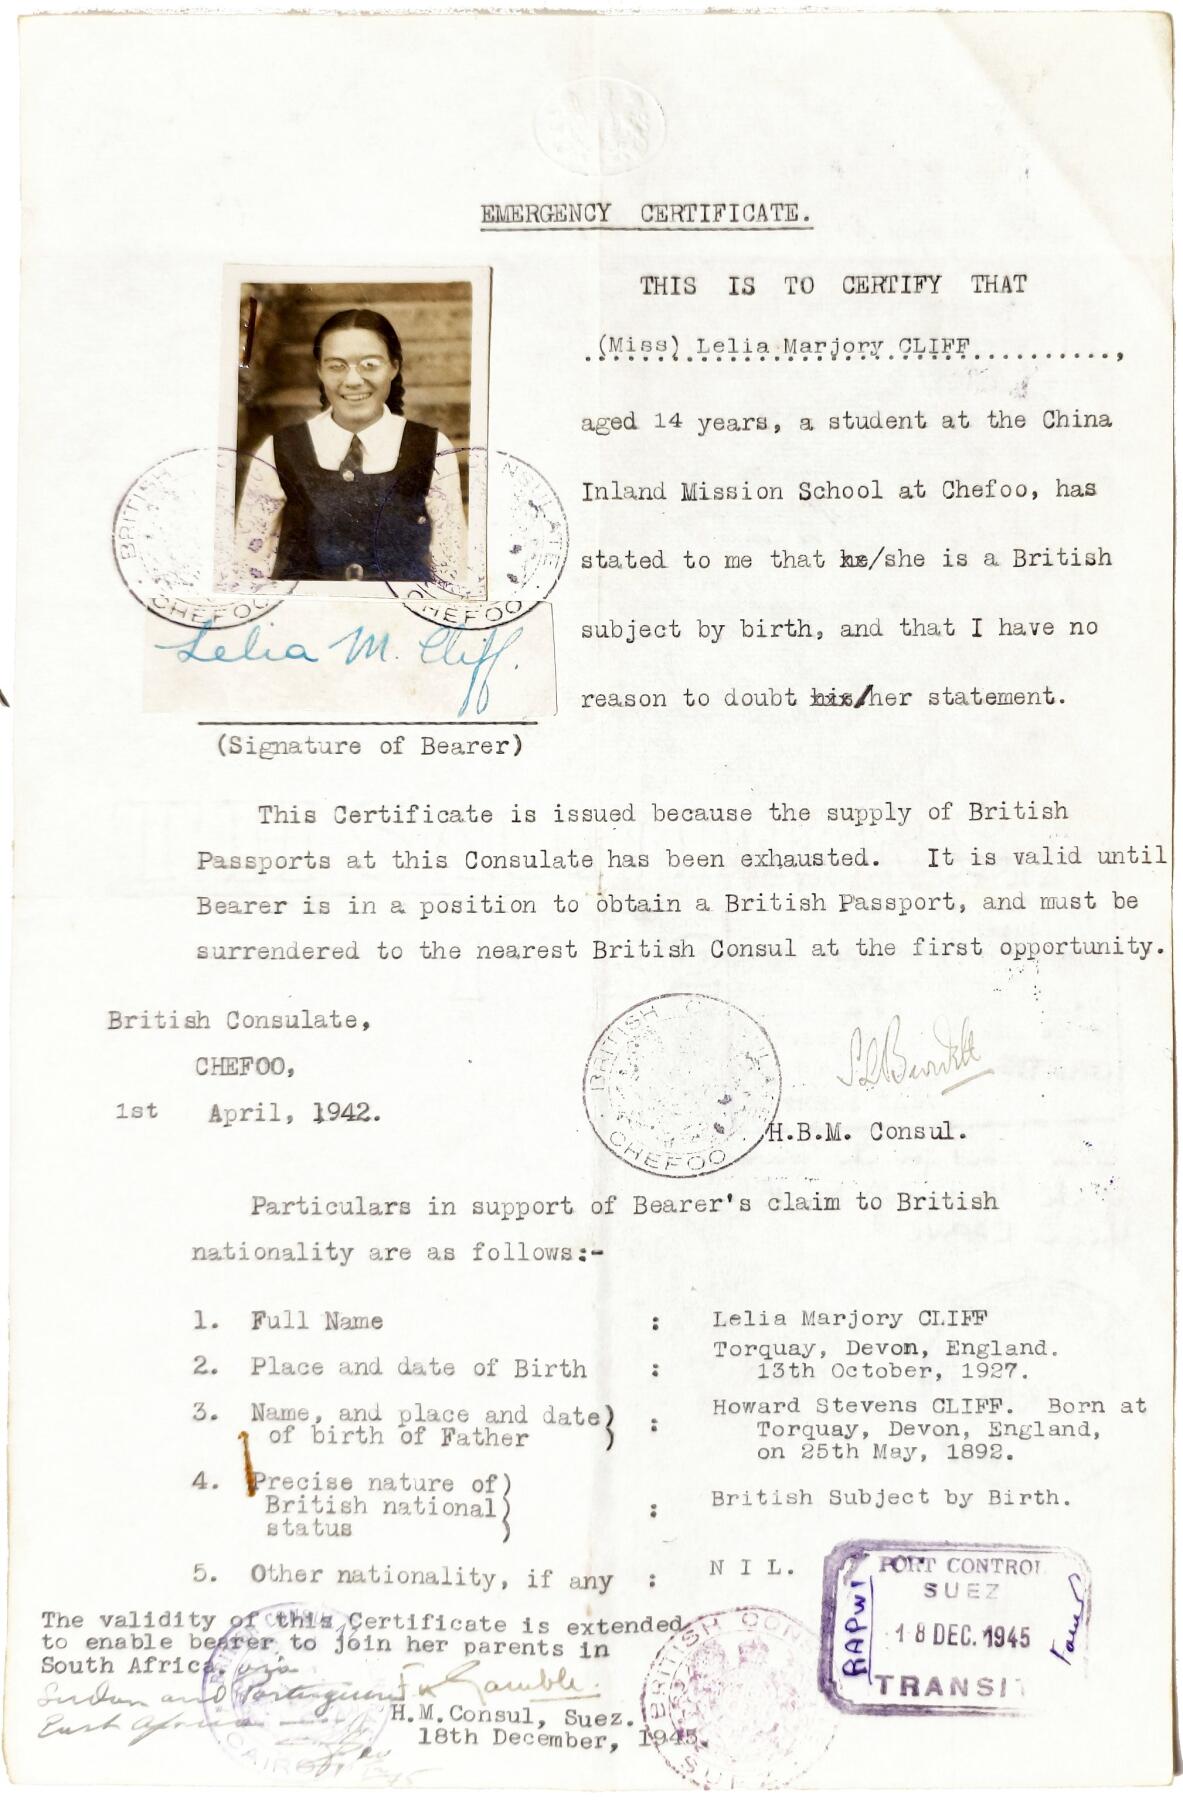 EMERGENCY CERTIFICATE.
THIS IS TO CERTIFY THAT
(Miss) Lelia Marjory CLIFF,
aged 14 years, a student at the China
Inland Mission School at Chefoo, has
stated to me that he/she is a British
subject by birth, and that I have no
reason to doubt his/her statement.
BRITISH
CHEFOO
NSULATE
CHEFOO
Lelia M. Cliff.
(Signature of Bearer)
This Certificate is issued because the supply of British
Passports at this Consulate has been exhausted. It is valid until
Bearer is in a position to obtain a British Passport, and must be
surrendered to the nearest British Consul at the first opportunity.
British Consulate,
CHEFOO,
1st April, 1942.
BRITISH
CHEFOO
H.B.M. Consul.
Particulars in support of Bearer's claim to British
nationality are as follows:-
1. Full Name : Lelia Marjory CLIFF
2. Place and date of Birth : Torquay, Devon, England.
13th October, 1927.
3. Name, and place and date) : Howard Stevens CLIFF. Born at
of birth of Father ) Torquay, Devon, England,
on 25th May, 1892.
4. Precise nature of)
British national) : British Subject by Birth.
status )
5. Other nationality, if any : N I L.
The validity of this Certificate is extended
to enable bearer to join her parents in
South Africa. via
Sudan and Portuguese
East Africa
Gamble.
H.M.Consul, Suez.
18th December, 1945.
CAIRO
BRITISH CON
SUEZ
PORT CONTROL
SUEZ
18 DEC. 1945
TRANSIT
RAPWI